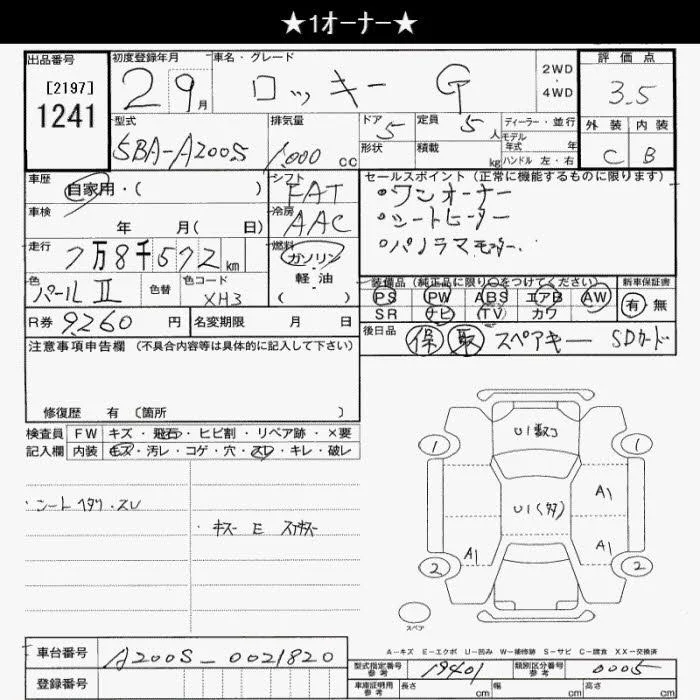 ★1オーナー★
出品番号 初度登録年月 車名・グレード 評価点
[2197] 2 9月 ロッキー G 2WD・4WD 3.5
1241
型式 排気量 ドア 5 定員 5人 ディーラー・並行 外装 内装
SBA-A200S 1,000cc 形状 積載 kg モデル年式 年 C B
ハンドル 左・右
車歴 シフト セールスポイント(正常に機能するものに限ります)
自家用・( ) FAT ・ワンオーナー
車検 冷房 ・シートヒーター
年 月( 日) AAC ・パノラマモニター
走行 燃料
7万8千572km ガソリン・軽油( )
色 色替 色コード 装備品(純正品に限り○をつけてください) 新車保証書
パールII XH3 PS PW ABS エアB AW 有・無
SR ナビ (TV) カワ
R券 9,260円 名変期限 月 日 後日品 保 取 スペアキー SDカード
注意事項申告欄(不具合内容等は具体的に記入して下さい)
修復歴 有 〔箇所 〕
検査員 FW キズ・飛石・ヒビ割・リペア跡・×要
記入欄 内装 キズ・汚レ・コゲ・穴・スレ・キレ・破レ
・シートヘタリ・スレ
・キズ E
U1数コ
1 1
A1
U1(多)
A1 A1
2 2
スペア
A-キズ E-エクボ U-凹み W-補修跡 S-サビ C-腐食 XX-交換済
車台番号 A200S-0021820
型式指定番号 参考 19401 類別区分番号 参考 0005
登録番号
車庫証明用 参考 長さ cm 幅 cm 高さ cm